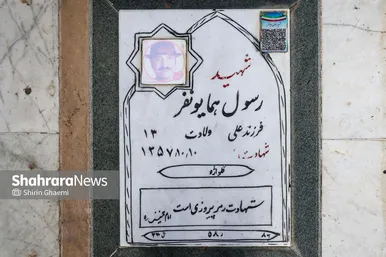 شهید
رسول همایونفر
فرزند علی ولادت ۱۳
شهادت: ۱۳۵۷،۱۰،۱۰
شهادت رمز پیروزی است
۵۸
ShahraraNews
© Shirin Ghaemi